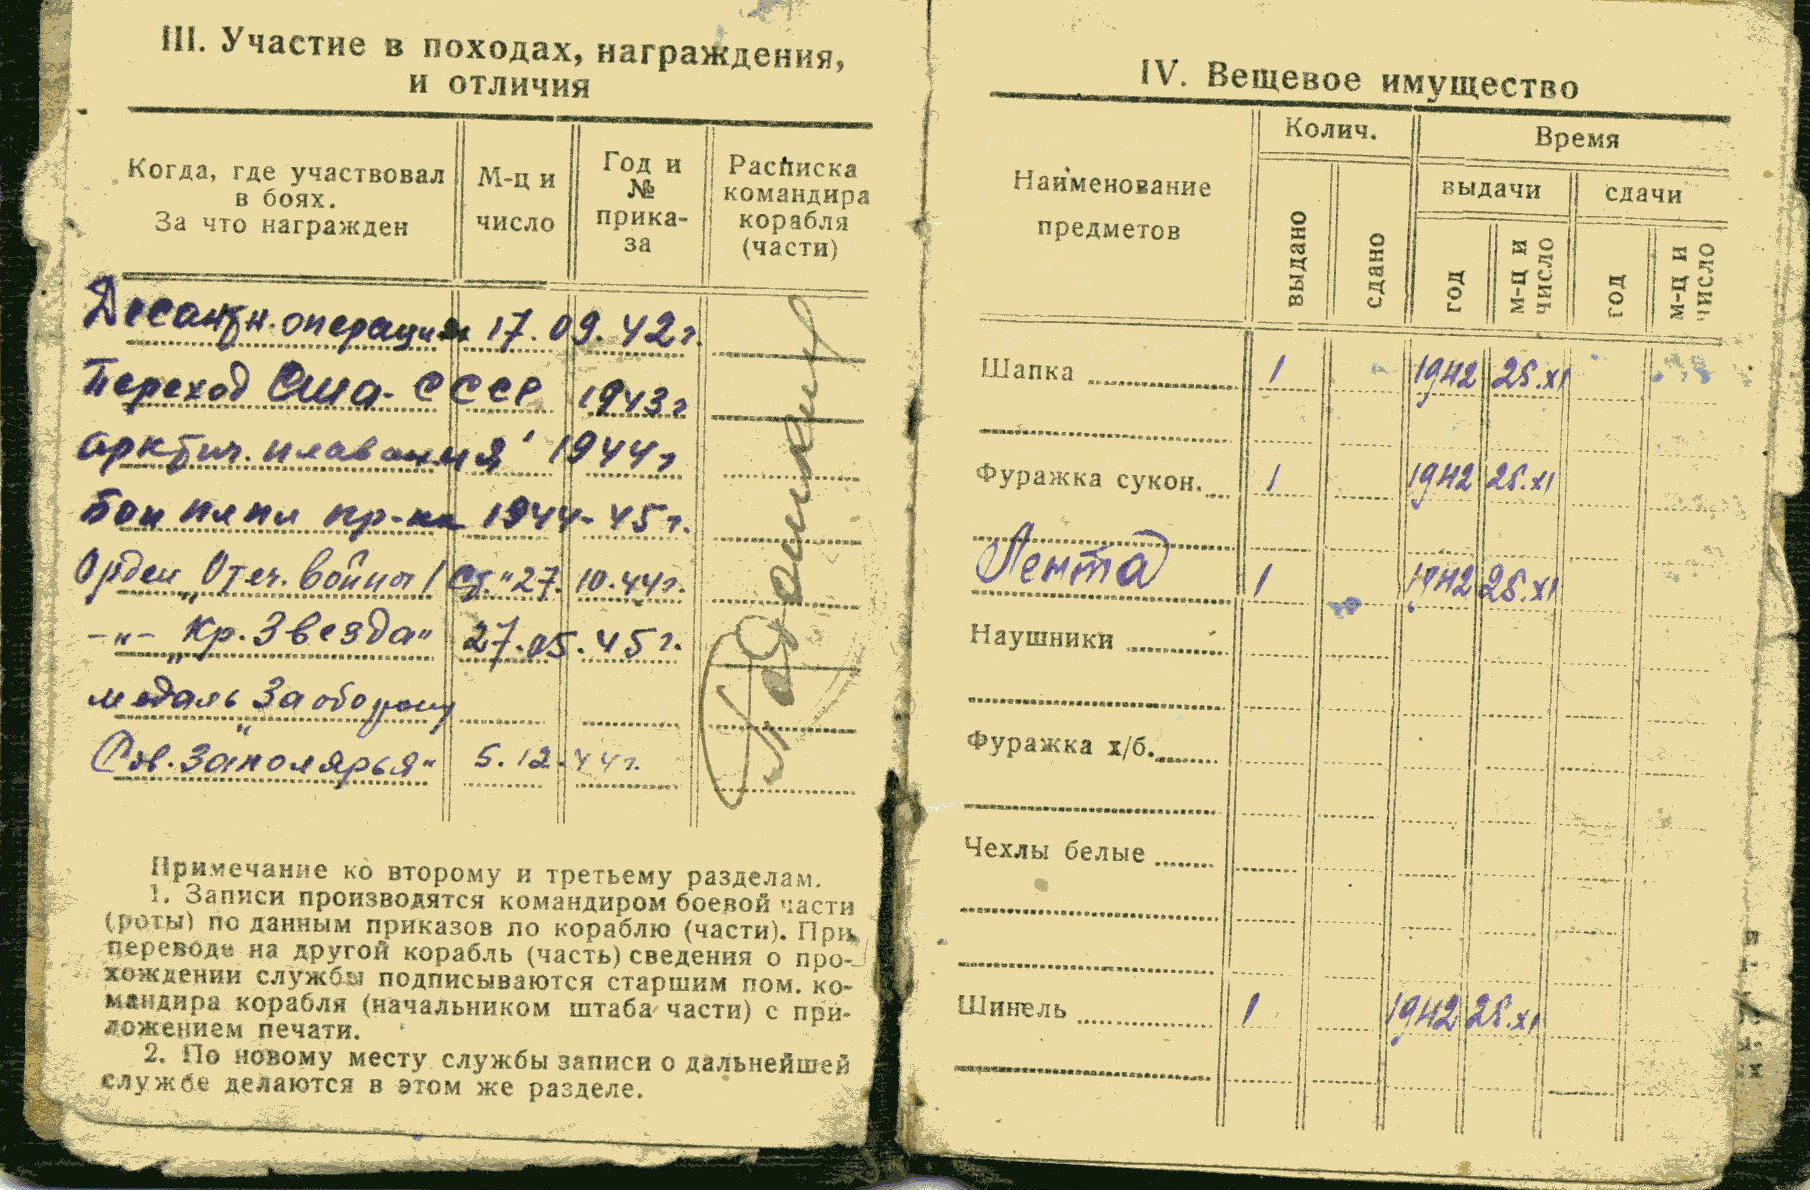 III. Участие в походах, награждения,
и отличия
Когда, где участвовал
в боях.
За что награжден
М-ц и
число
Год и
№
прика-
за
Расписка
командира
корабля
(части)
Десантн. операции 17.09.42г.
Переход Сша - СССР 1943г
арктич. плавания 1944г
Бои пр-ка 1944-45г.
Орден „Отеч. войны I ст." 27.10.44г.
-"- „Кр. Звезда" 27.05.45г.
медаль „За оборону
Сов. Заполярья" 5.12.44г.
Примечание ко второму и третьему разделам.
1. Записи производятся командиром боевой части
(роты) по данным приказов по кораблю (части). При
переводе на другой корабль (часть) сведения о про-
хождении службы подписываются старшим пом. ко-
мандира корабля (начальником штаба части) с при-
ложением печати.
2. По новому месту службы записи о дальнейшей
службе делаются в этом же разделе.
IV. Вещевое имущество
Наименование
предметов
Колич.
Время
выдачи
сдачи
выдано
сдано
год
м-ц и
число
год
м-ц и
число
Шапка 1 1942 25.XI
Фуражка сукон. 1 1942 25.XI
Лента 1 1942 25.XI
Наушники
Фуражка х/б.
Чехлы белые
Шинель 1 1942 25.XI